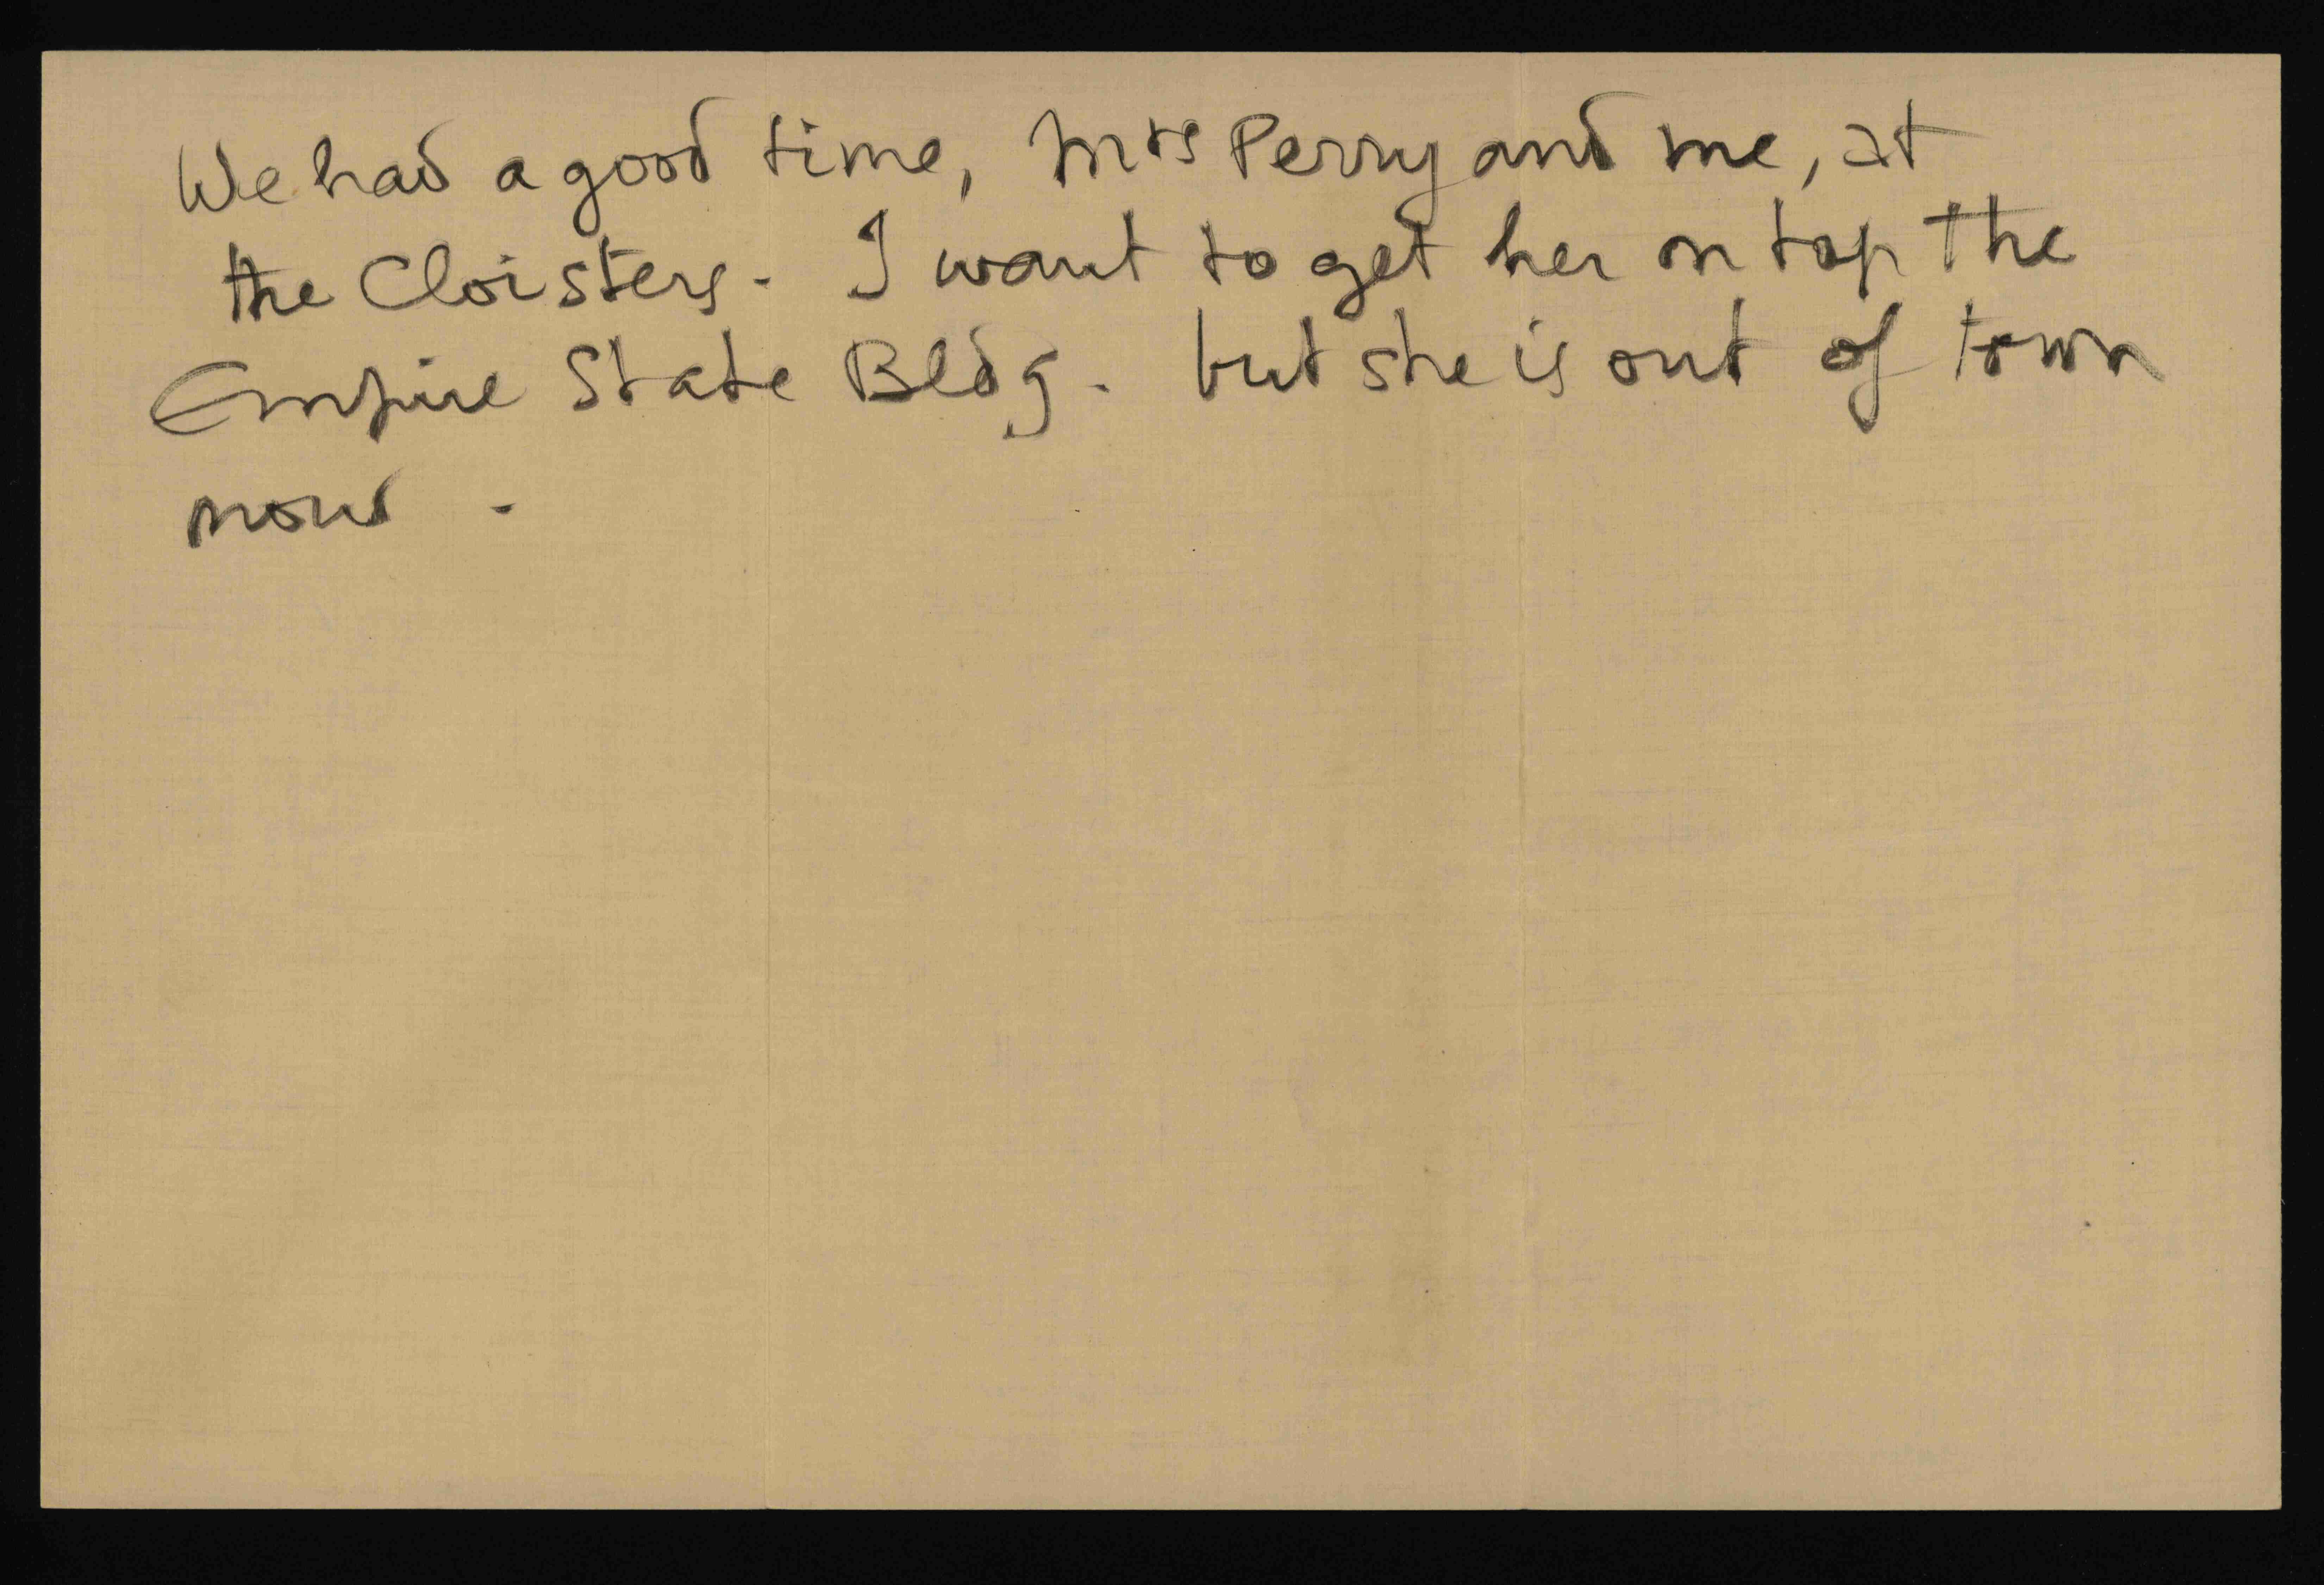 We had a good time, Mrs Perry and me, at
the Cloisters. I want to get her on top the
Empire State Bldg. but she is out of town
now.